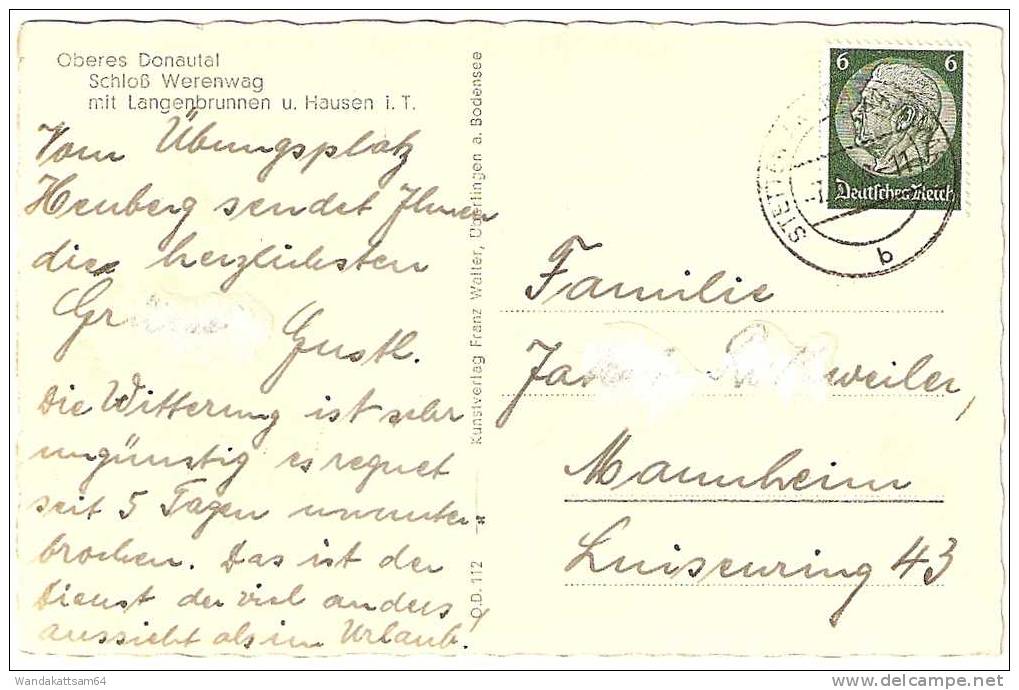 Oberes Donautal
Schloß Werenwag
mit Langenbrunnen u. Hausen i. T.
Vom Übungsplatz
Heuberg sendet Ihnen
die herzlichsten
Gustl.
Die Witterung ist sehr
ungünstig es regnet
seit 5 Tagen ununter-
brochen. Das ist der
Dienst der viel anders
aussieht als im Urlaub!
Kunstverlag Franz Walter, Überlingen a. Bodensee
O.D. 112
6 6
Deutsches Reich
b
Familie
weiler,
Mannheim
Luisenring 43
Wandakattsam64
delcampe.net